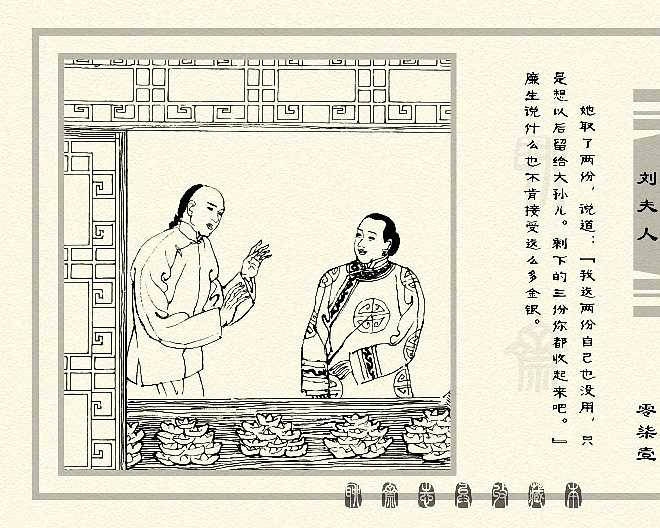 她取了两份，说道：「我这两份自己也没用，只
是想以后留给大孙儿。剩下的三份你都收起来吧。」
廉生说什么也不肯接受这么多金银。
刘夫人
零柒壹
聊斋志异收藏本